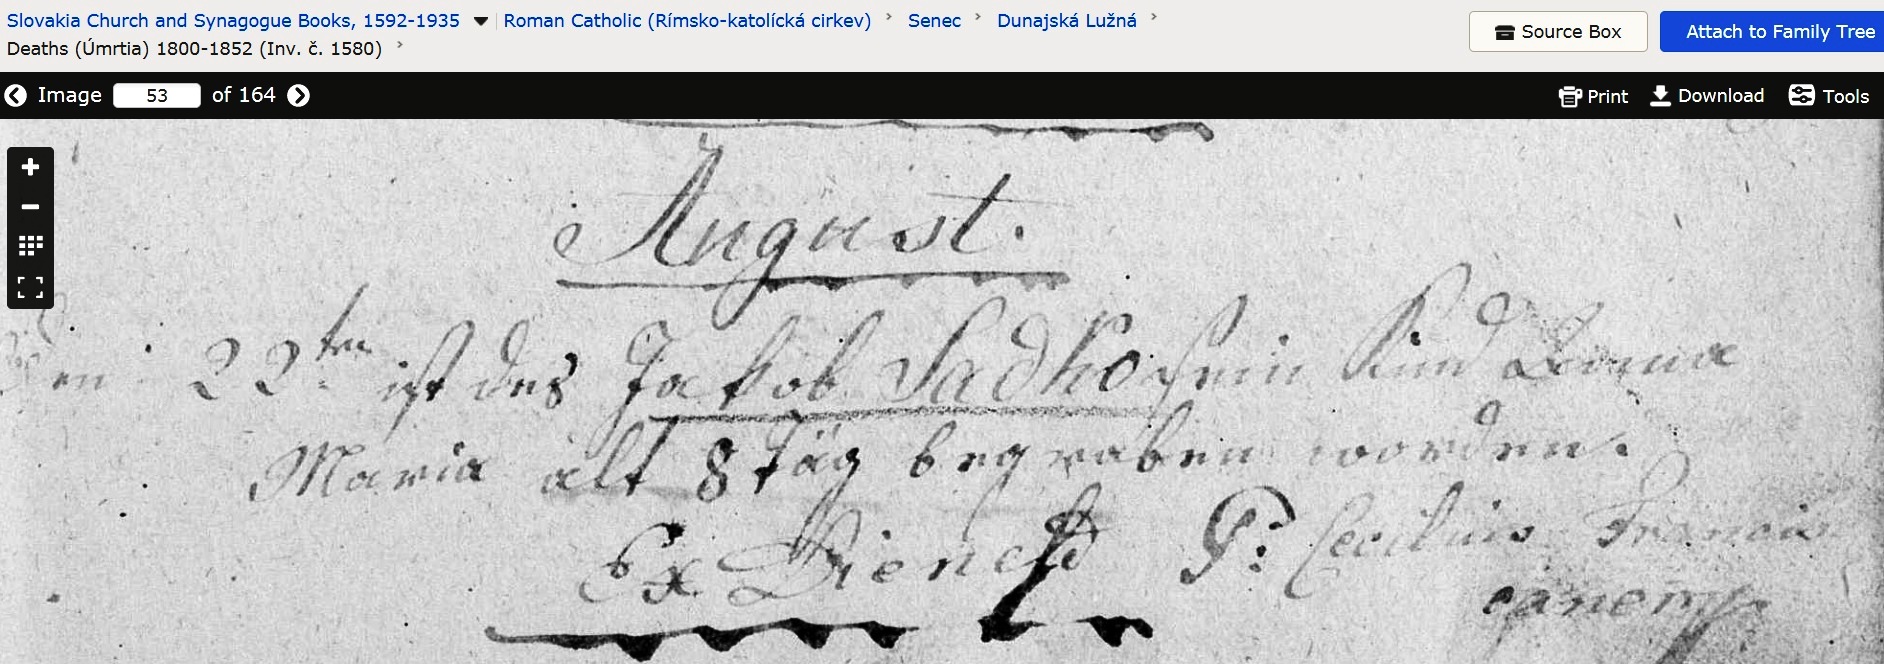 Slovakia Church and Synagogue Books, 1592-1935 Roman Catholic (Rímsko-katolícká cirkev) > Senec > Dunajská Lužná >
Deaths (Úmrtia) 1800-1852 (Inv. č. 1580) >
Source Box
Attach to Family Tree
Image 53 of 164
Print Download Tools
August.
Den 22ten ist des Jakob Sadko sein Kind Anna
Maria alt 8 täg begraben worden.
Ex P: Cecilius Francis
canemp